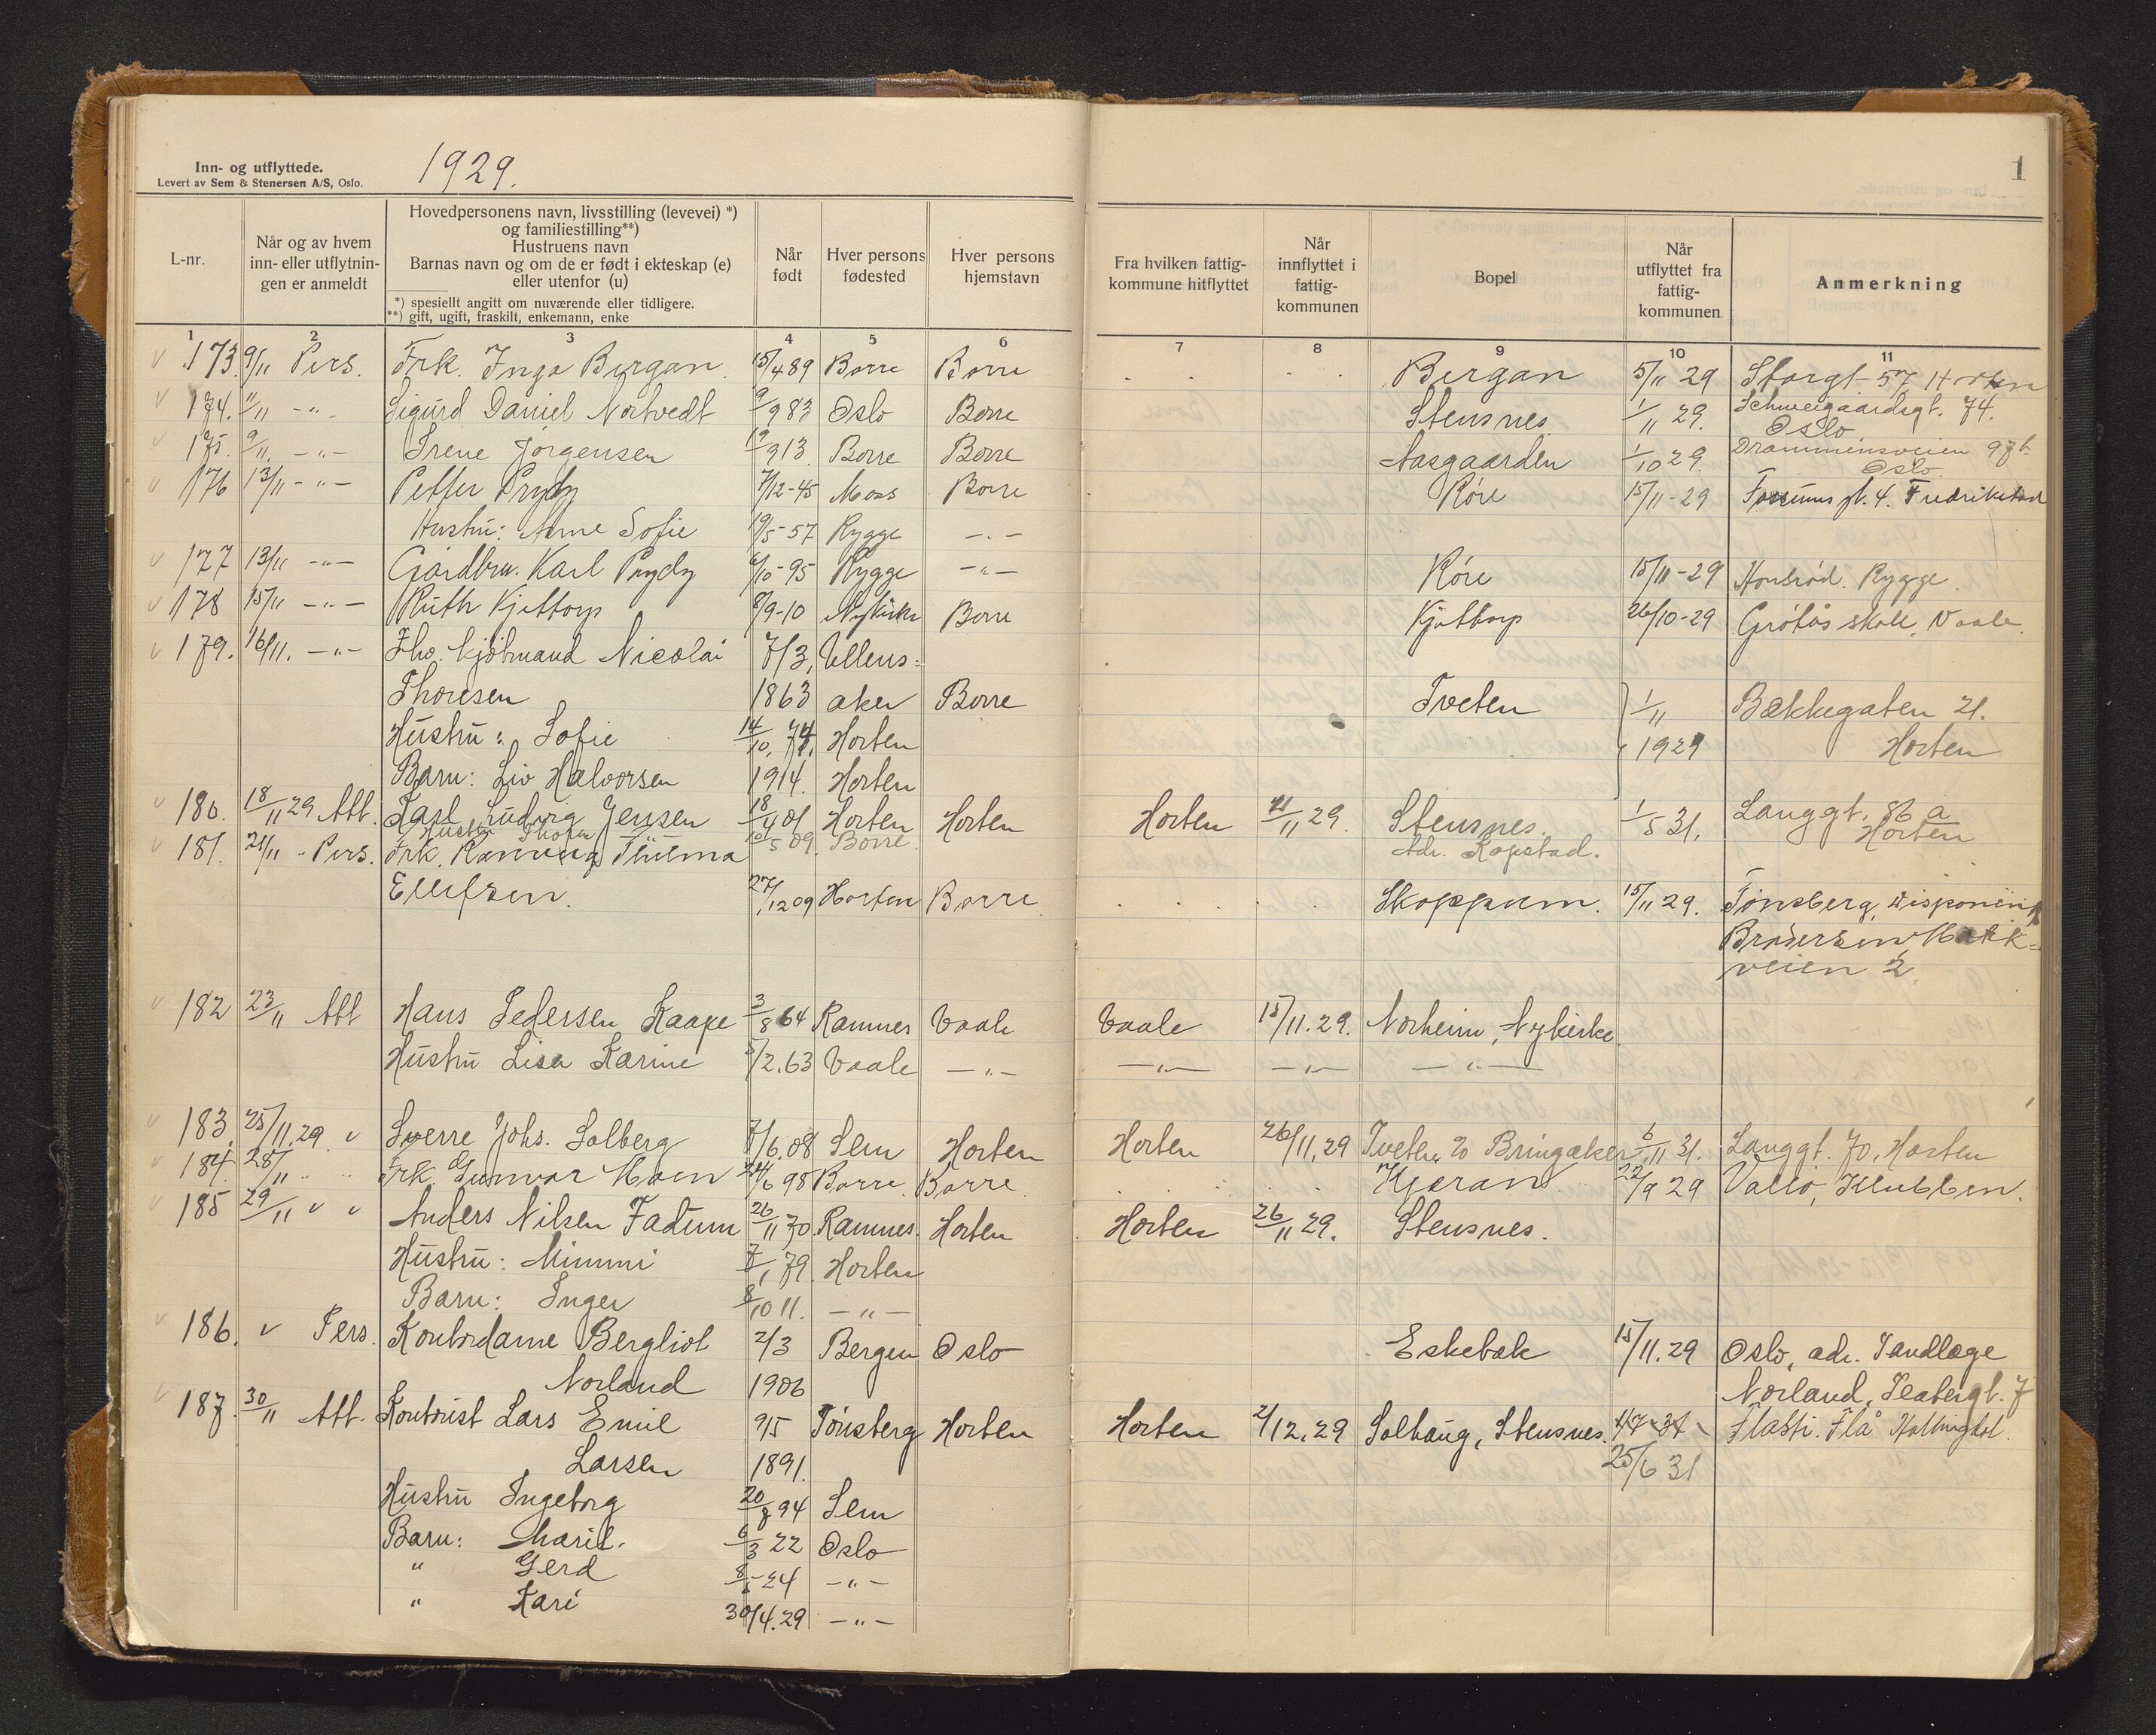 Inn- og utflyttede.
Levert av Sem & Stenersen A/S, Oslo.
1929.
1
L-nr.
Når og av hvem
inn- eller utflytnin-
gen er anmeldt
Hovedpersonens navn, livsstilling (levevei) *)
og familiestilling**)
Hustruens navn
Barnas navn og om de er født i ekteskap (e)
eller utenfor (u)
*) spesiellt angitt om nuværende eller tidligere.
**) gift, ugift, fraskilt, enkemann, enke
Når
født
Hver persons
fødested
Hver persons
hjemstavn
Fra hvilken fattig-
kommune hitflyttet
Når
innflyttet i
fattig-
kommunen
Bopel
Når
utflyttet fra
fattig-
kommunen
Anmerkning
1 2 3 4 5 6 7 8 9 10 11
173. 9/11 Pers. Frk. Inga Bergan. 15/4 89 Borre Borre Bergan 5/11 29 Storgt 57 Horten
174. 11/11 -"- Sigurd Daniel Nortvedt 9/9 83 Oslo Borre Stensnes 1/11 29. Schweigaardsgt. 74.
Oslo
175. 9/11. -"- Irene Jørgensen 19/9 13. Borre Borre Aasgaarden 1/10 29. Drammensveien 97b.
Oslo
176 13/11 -"- Petter Prydz 7/12-45 Moss Borre Røre 15/11-29 gt. 4. Fredrikstad
Hustru: Anne Sofie 19/5-57 Rygge -"-
177 13/11 -"- Gårdbru. Karl Prydz 6/10-95 Rygge -"- Røre 15/11-29 Rygge
178 15/11 -"- Ruth Kjøttorp 8/9-10 Nykirke Borre Kjøttorp 26/10-29 Grøtås skole, Vaale.
179. 16/11. -"- Fhv. kjøbmand Nicolai 7/3, Ullens-
Thoresen 1863 aker Borre Tveten 1/11 Bækkegaten 21.
Hustru: Sofie 14/10, 74, Horten 1929 Horten
Barn: Liv Halvorsen 1914. Horten
180. 18/11 29 Att. Karl Ludvig Jensen 18/4 01 Horten Horten Horten 21/11 29. Stensnes. 1/5 31. Langgt. 86 a
Hustr. Thora 10/5 09. Borre. Adr. Kopstad. Horten
181. 21/11 - Pers. Frk. Ranveig Thelma
Ellefsen. 27/12 09 Horten Borre Skoppum. 15/11 29. Tønsberg, Disponent
Brodersen
veien 2.
182 23/11 Att Hans Pedersen Kaape 3/8 64 Ramnes Vaale Vaale 15/11.29. Norheim, Nykirke.
Hustru Lisa Karine 5/2.63 Vaale -"- -"- -"- -"-
183. 25/11.29 " Sverre Johs. Solberg 7/6.08 Sem Horten Horten 26/11.29 Tveten, Bringaker 6/11 31. Langgt. 70, Horten
184. 28/11 " Frk. Gunvor Moen 24/6 98 Borre. Borre. Kjæran. 22/9 29 Vallø, Klubben.
185 29/11 " " Anders Nilsen Fadum 26/11 70. Ramnes. Horten Horten 26/11 29. Stensnes.
Hustru: Mimmi 7/1 79. Horten
Barn: Inger 8/10 11. -"-
186. " Pers. Kontordame Bergliot 2/3 Bergen Oslo Eskebæk 15/11.29 Oslo, adr. Tandlæge
Norland 1906 Norland, Teatergt. 7
187. 30/11 Att. Kontorist Lars Emil 9/5 Tønsberg Horten Horten 2/12.29 Solhaug, Stensnes. 1/7 31 Flå Hallingdal.
Larsen 1891. 25/6 31
Hustru Ingeborg 20/8 94 Sem
Barn: Marit. 6/3 22 Oslo
" Gerd 8/6-24 -"-
" Kari 30/4.29 -"-